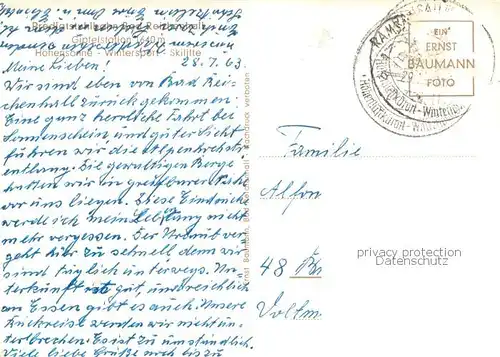 Predigtstuhlbahn Bad Reichenhall
Gipfelstation
Höhensonne - Wintersport - Skilifte
Meine Lieben! 28.7.63
Wir sind eben von Bad Rei-
chenhall zurückgekommen.
Eine ganz herrliche Fahrt bei
Sonnenschein und guter Sicht
führen wir die Alpenhochstr.
entlang. Die gewaltigen Berge
hatten wir in greifbarer Nähe
vor uns liegen. Diese Eindrücke
werde ich mein Lebtang nicht
mehr vergessen. Der Urlaub ver-
geht hier zu schnell denn wir
sind täglich unterwegs. Un-
terkunft ist gut, und reichlich
an Essen gibt es auch. Unsere
Rückreise werden wir nicht un-
terbrechen. Es ist zu umständlich.
Viele liebe Grüße noch bis zu
Ernst Baumann, Bad Reichenhall Nachdruck verboten
RAMSAU
Heilklimakurort - Wintersport
EIN
ERNST
BAUMANN
FOTO
Familie
Alfon
48 Bi
Voltm
privacy protection
Datenschutz